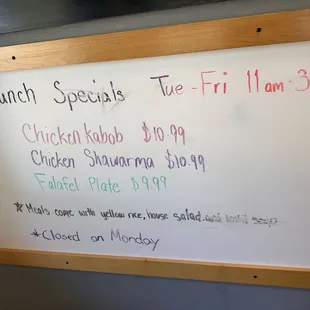 unch Specials Tue - Fri 11am - 3
Chicken Kabob $10.99
Chicken Shawarma $10.99
Falafel Plate $9.99
* Meals come with yellow rice, house salad and
* Closed on Monday